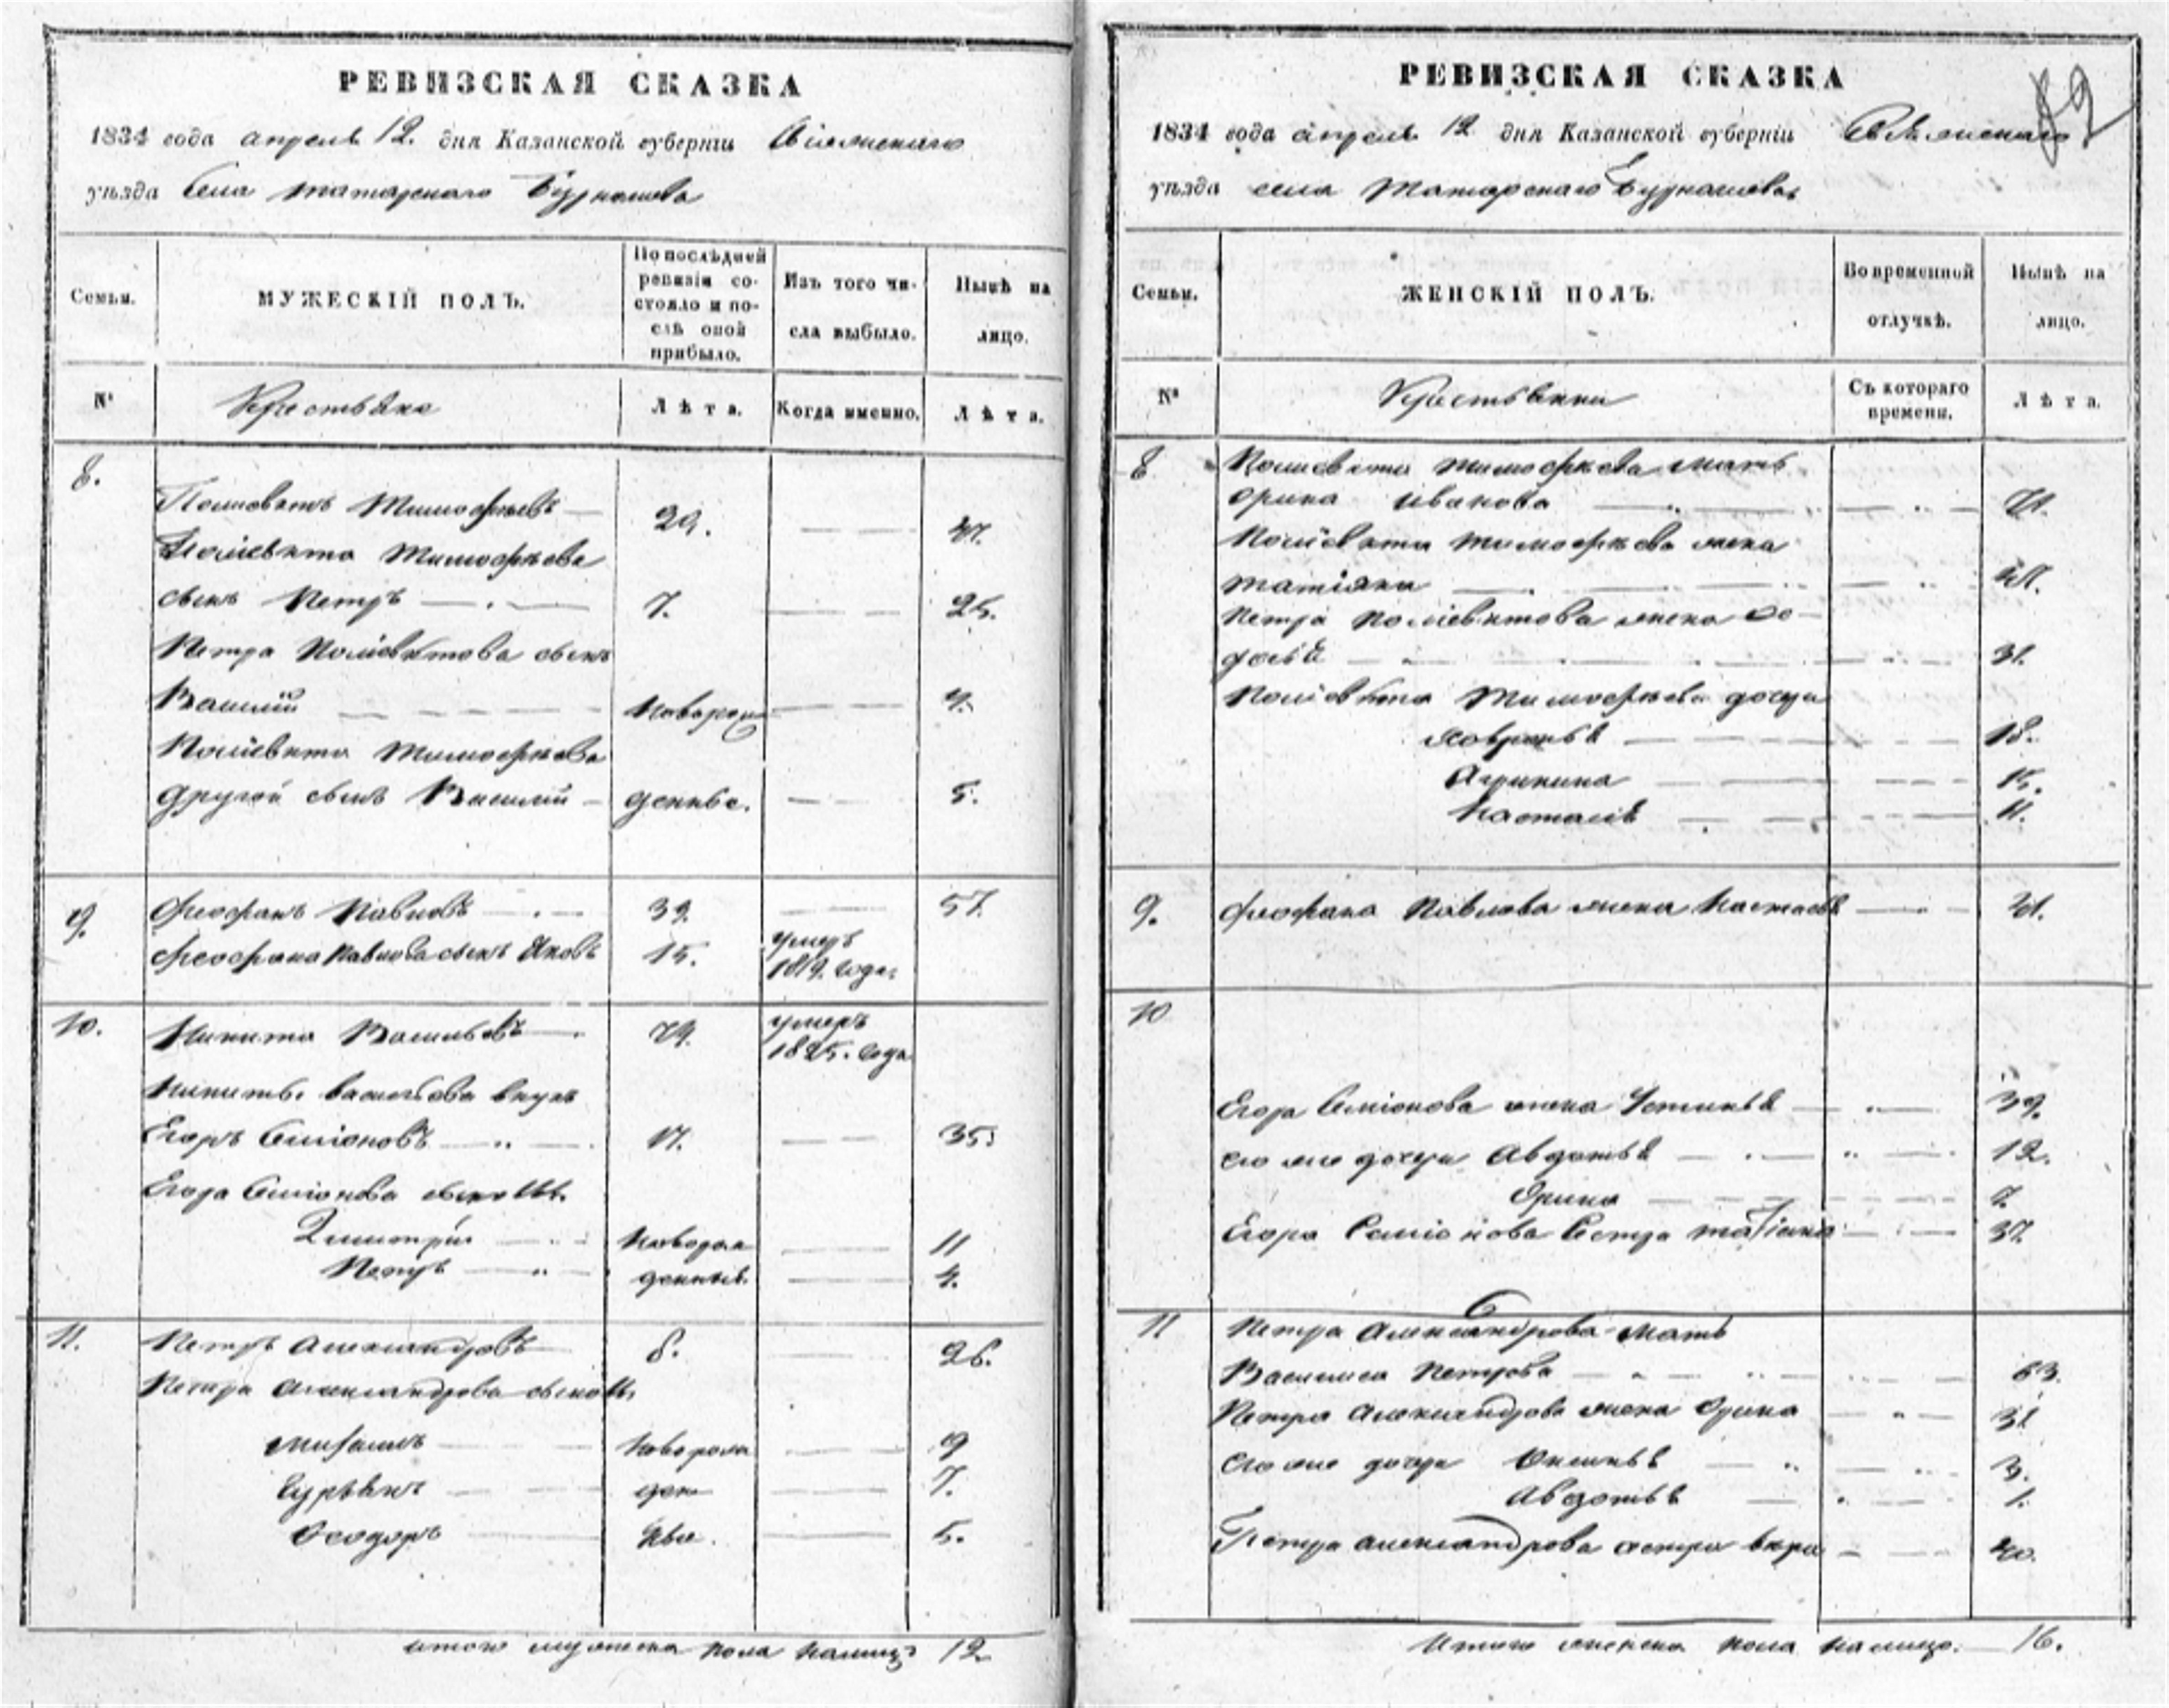 РЕВИЗСКАЯ СКАЗКА
1834 года апреля 12. дня Казанской губерніи Свіяжскаго
уѣзда Села татарскаго Бурнашева
Семьи.
МУЖЕСКІЙ ПОЛЪ.
По послѣдней ревизіи состояло и послѣ оной прибыло.
Изъ того числа выбыло.
Нынѣ на лицо.
№
Крестьяне
Лѣта.
Когда именно.
Лѣта.
8.
Полиевктъ Тимофѣевъ 29. 47.
Полиевкта Тимофѣева
сынъ Петръ 7. 25.
Петра Полиевктова сынъ
Василий новорож 4.
Полиевкта Тимофѣева
другой сынъ Василий денные. 5.
9. Феофанъ Павловъ 39. 57.
Феофана Павлова сынъ Яковъ 15. умеръ 1819. года
10. Никита Васильевъ 74. умеръ 1825. года
Никиты васильева внукъ
Егоръ Семіоновъ 17. 35.
Егора Семіонова сыновья
Димитрій новорож 11
Петръ денные. 4.
11. Петръ Александровъ 8. 26.
Петра Александрова сыновья
Михаилъ новорож 9
Гурьянъ ден 7.
Феодоръ ные. 5.
итого мужеска пола налицо 12
РЕВИЗСКАЯ СКАЗКА
82
1834 года апреля 12 дня Казанской губерніи Свіяжскаго
уѣзда села Татарскаго Бурнашева
Семьи.
ЖЕНСКІЙ ПОЛЪ.
Во временной отлучкѣ.
Нынѣ на лицо.
№
Крестьянки
Съ котораго времени.
Лѣта.
8 Полиевкта Тимофѣева мать
Орина Иванова 71.
Полиевкта тимофѣева жена
татіяна 47.
Петра Полиевктова жена Фе-
досья 31.
Полиевкта Тимофѣева дочери
18.
Агрипина 15.
Настасья 11.
9. Феофана Павлова жена Настасья
10
Егора Семіонова жена Устинья 39.
его же дочери Авдотья 12.
Орина 7.
Егора Семіонова Сестра татіяна 37.
11 Петра Александрова мать
Василиса Петрова 63.
Петра Александрова жена Орина 31
его же дочери Аксинья 3.
Авдотья 1.
Петра александрова сестра вѣра 40.
Итого женска пола на лицо. 16.